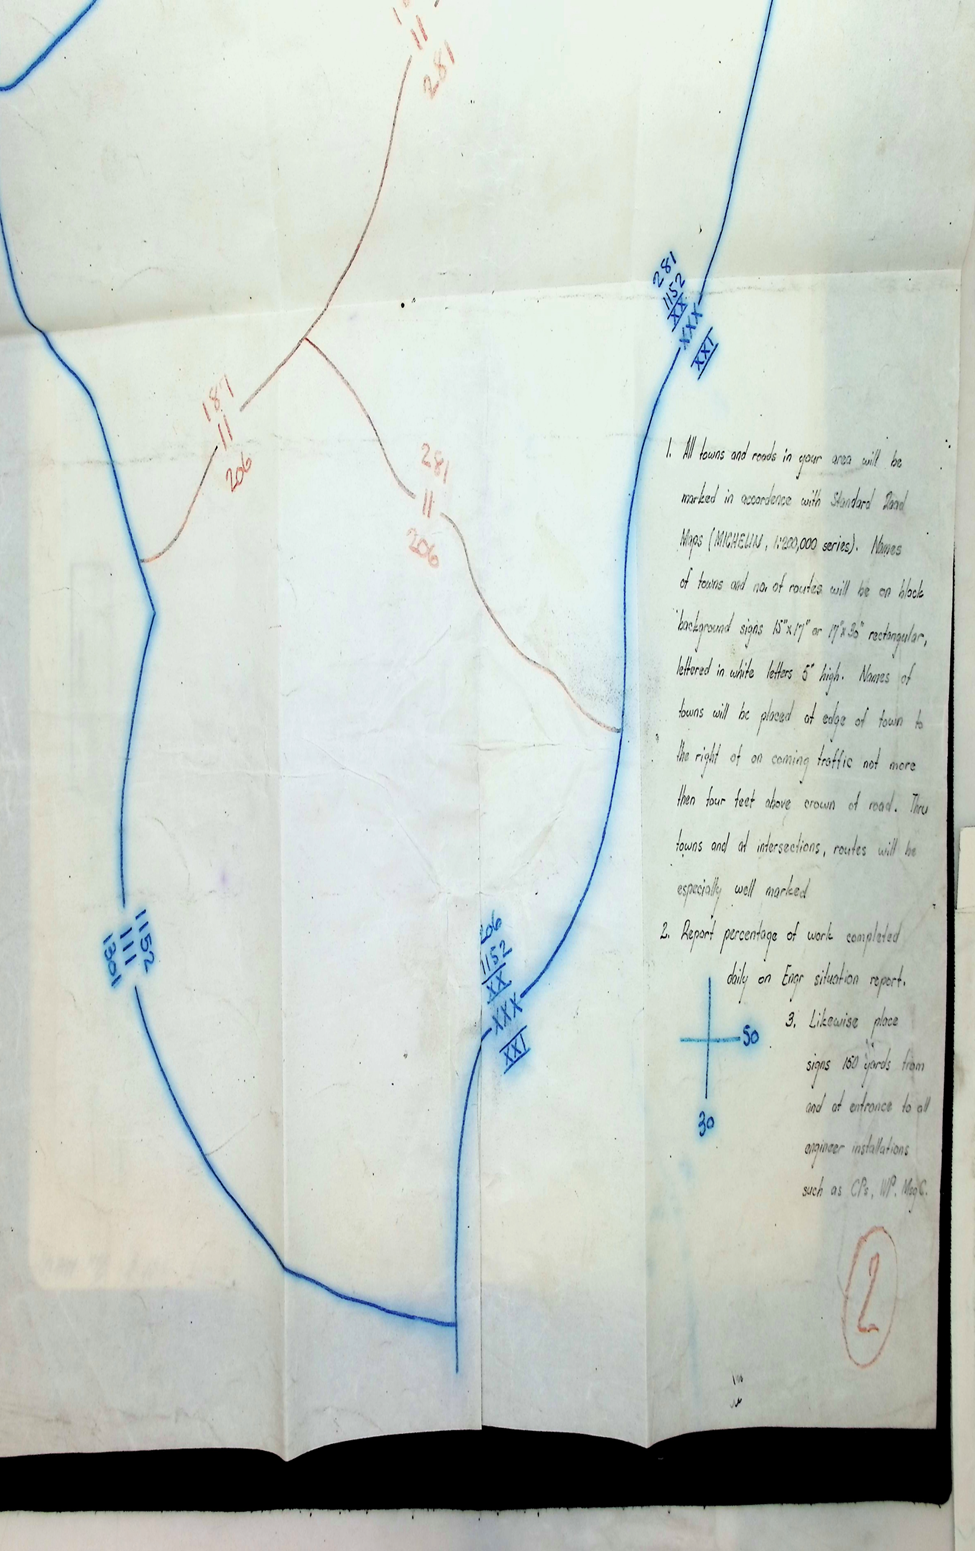 11
281
281
1152
XX
XXX
XXI
187
11
206
281
11
206
1. All towns and roads in your area will be
marked in accordence with Standard Road
Maps (MICHELIN, 1:200,000 series). Names
of towns and no. of routes will be on black
background signs 15"x17" or 17"x30" rectangular,
lettered in white letters 5" high. Names of
towns will be placed at edge of town to
the right of on coming traffic not more
then four feet above crown of road. Thru
towns and at intersections, routes will be
especially well marked
2. Report percentage of work completed
daily on Engr situation report.
3. Likewise place
signs 150 yards from
and at entrance to all
engineer installations
such as CPs, WP, Msg C.
1152
111
1301
206
1152
XX
XXX
XXI
50
30
2